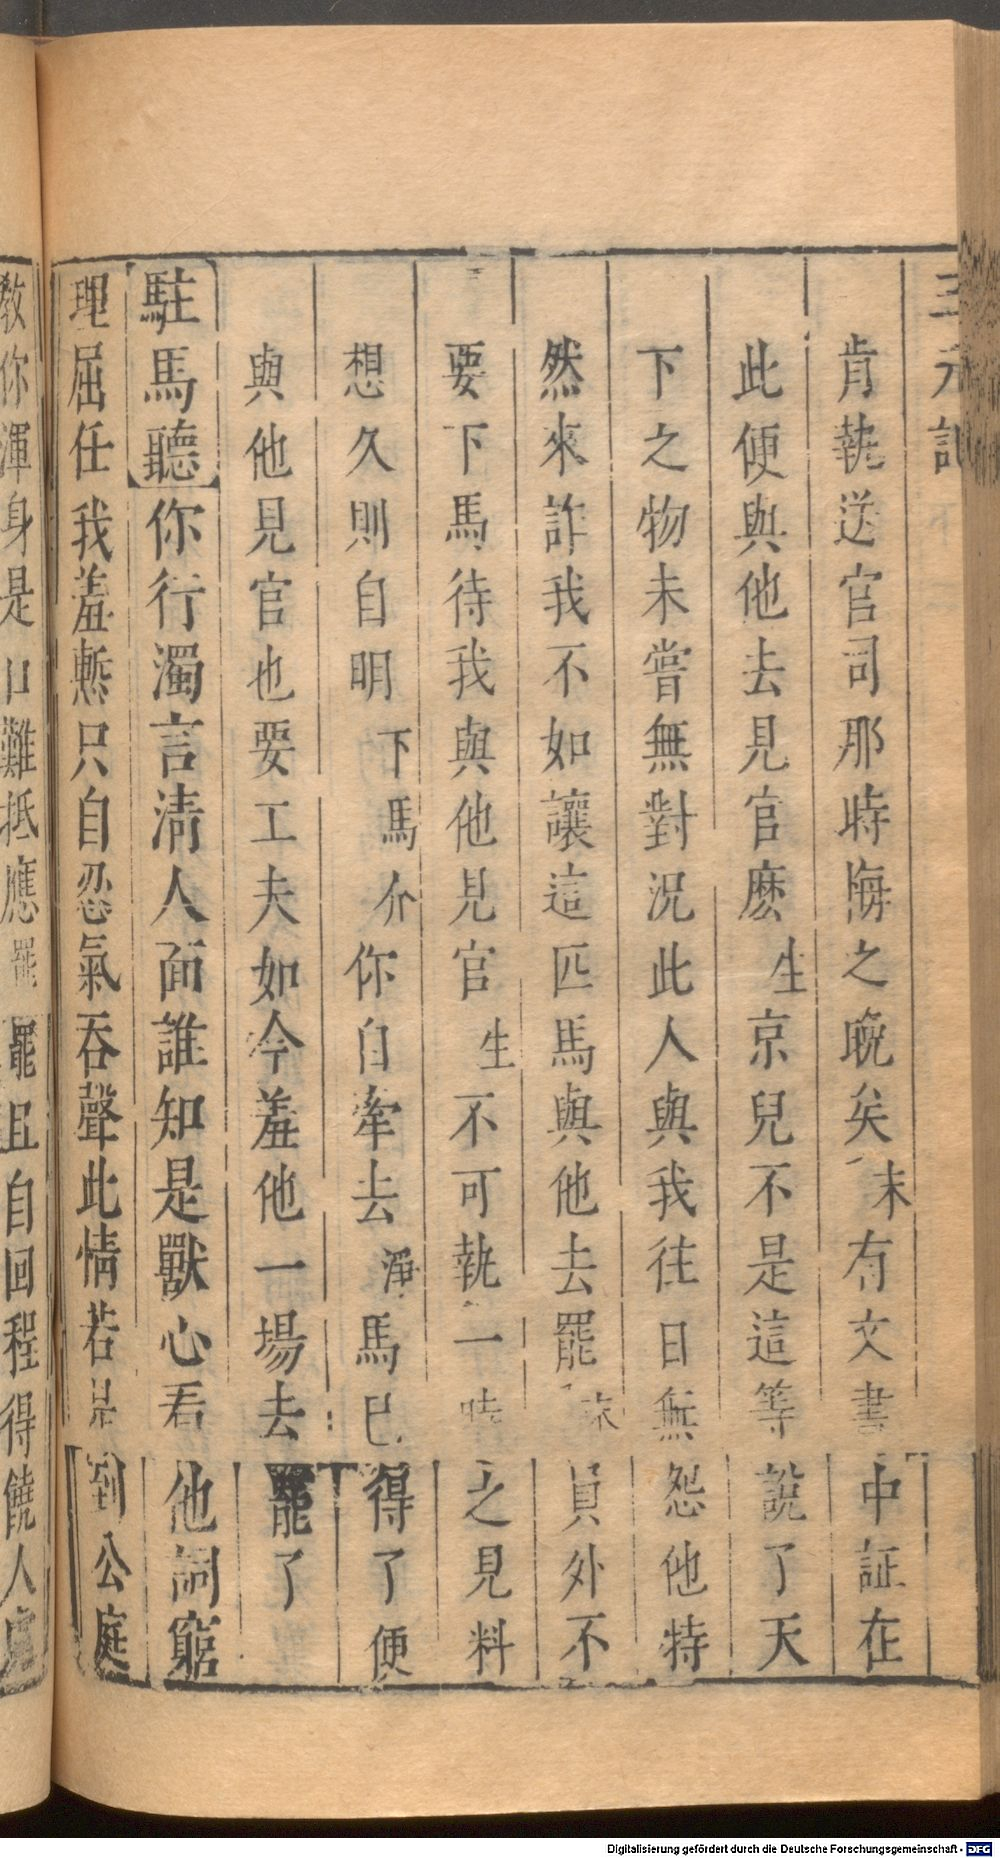 三元記
肯執送官司那時悔之晚矣末有文書中証在
此便與他去見官麽生京兒不是這等說了天
下之物未嘗無對況此人與我往日無怨他特
然來詐我不如讓這匹馬與他去罷末員外不
要下馬待我與他見官生不可執一時之見料
想久則自明下馬介你自牽去淨馬已得了便
與他見官也要工夫如今羞他一場去罷了
駐馬聽你行濁言清人面誰知是獸心看他詞窮
理屈任我羞慙只自忍氣吞聲此情若是到公庭
教你渾身是口難抵應罷罷且自回程得饒人處
Digitalisierung gefördert durch die Deutsche Forschungsgemeinschaft - DFG